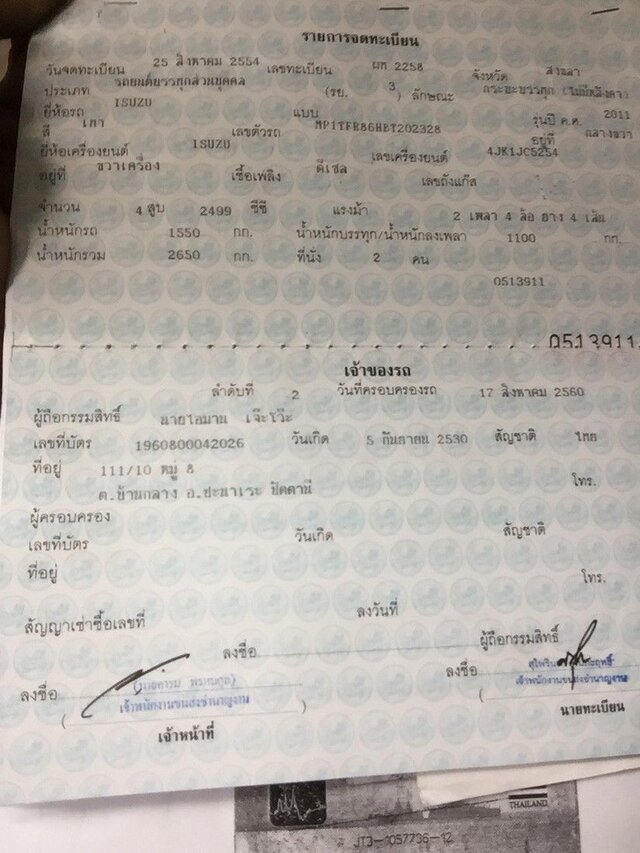 รายการจดทะเบียน
วันจดทะเบียน 25 สิงหาคม 2554 เลขทะเบียน ผท 2258 จังหวัด สงขลา
ประเภท รถยนต์บรรทุกส่วนบุคคล (รย. 3 ) ลักษณะ กระบะบรรทุก (ไม่มีหลังคา)
ยี่ห้อรถ ISUZU แบบ รุ่นปี ค.ศ. 2011
สี เทา เลขตัวรถ MP1TFR86HBT202328 อยู่ที่ กลางขวา
ยี่ห้อเครื่องยนต์ ISUZU เลขเครื่องยนต์ 4JK1JC5254
อยู่ที่ ขวาเครื่อง เชื้อเพลิง ดีเซล เลขถังแก๊ส
จำนวน 4 สูบ 2499 ซีซี แรงม้า 2 เพลา 4 ล้อ ยาง 4 เส้น
น้ำหนักรถ 1550 กก. น้ำหนักบรรทุก/น้ำหนักลงเพลา 1100 กก.
น้ำหนักรวม 2650 กก. ที่นั่ง 2 คน
0513911
0513911
เจ้าของรถ
ลำดับที่ 2 วันที่ครอบครองรถ 17 สิงหาคม 2560
ผู้ถือกรรมสิทธิ์ นายไอมาน เจ๊ะโว๊ะ
เลขที่บัตร 1960800042026 วันเกิด 5 กันยายน 2530 สัญชาติ ไทย
ที่อยู่ 111/10 หมู่ 8 โทร.
ต.บ้านกลาง อ.ปะนาเระ ปัตตานี
ผู้ครอบครอง
เลขที่บัตร วันเกิด สัญชาติ
ที่อยู่ โทร.
สัญญาเช่าซื้อเลขที่ ลงวันที่
ลงชื่อ ผู้ถือกรรมสิทธิ์
ลงชื่อ ลงชื่อ
เจ้าพนักงานขนส่งชำนาญงาน เจ้าพนักงานขนส่งชำนาญงาน
เจ้าหน้าที่ นายทะเบียน
THAILAND
JT3-1057736-12